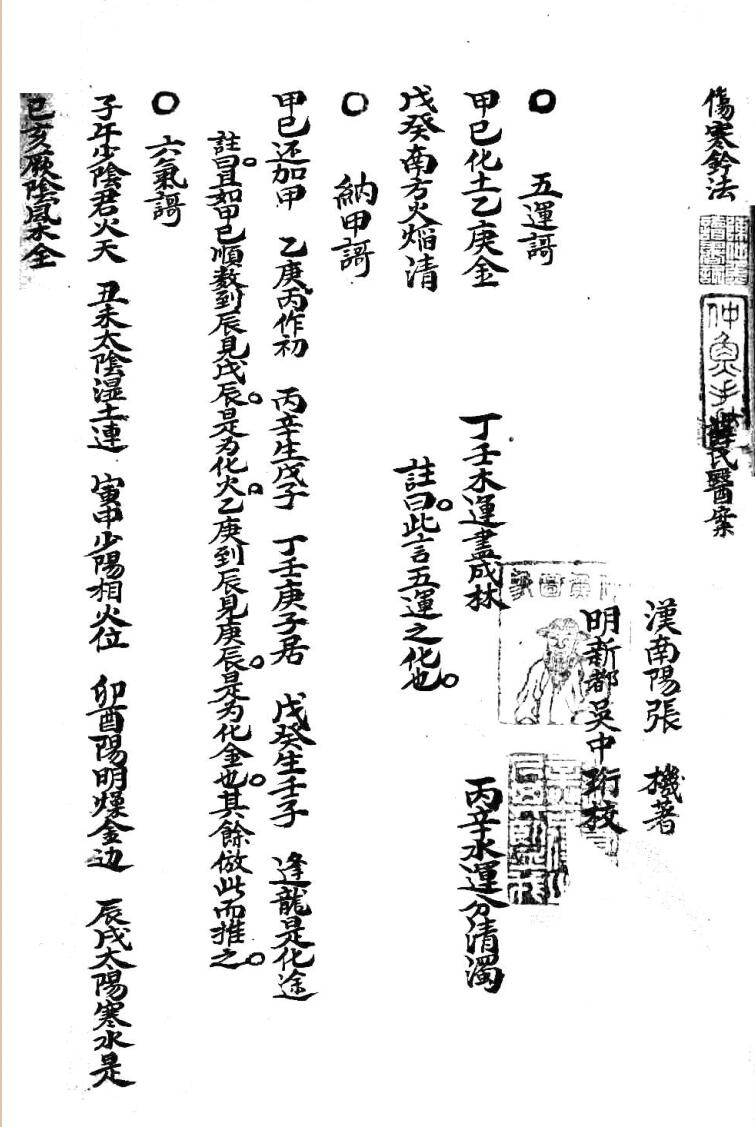 傷寒鈐法 薛氏醫案
漢南陽張 機著
明新都吳中珩校
○ 五運謌
甲已化土乙庚金 丁壬木運盡成林 丙辛水運分清濁
戊癸南方火焰清 註曰此言五運之化也
○ 納甲謌
甲已还加甲 乙庚丙作初 丙辛生戊子 丁壬庚子居 戊癸生壬子 逢龍是化途
註曰且如甲已順数到辰見戊辰是为化火乙庚到辰見庚辰是为化金也其餘倣此而推之
○ 六氣謌
子午少陰君火天 丑未太陰湿土連 寅申少陽相火位 卯酉陽明燥金边 辰戌太陽寒水是
已亥厥陰風木全